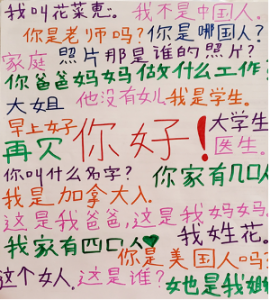 我叫花菜惠。 我不是中国人。
你是老师吗? 你是哪国人?
家庭 照片那是谁的照片?
你爸爸妈妈做什么工作?
大姐 他没有女儿 我是学生。
早上好 你好! 大学生
再见 医生。
你叫什么名字? 你家有几口人
我是加拿大人.
这是我爸爸,这是我妈妈
我家有四口人♥ 我姓花。
你是美国人吗?
这个女人. 这是谁? 她也是我姐